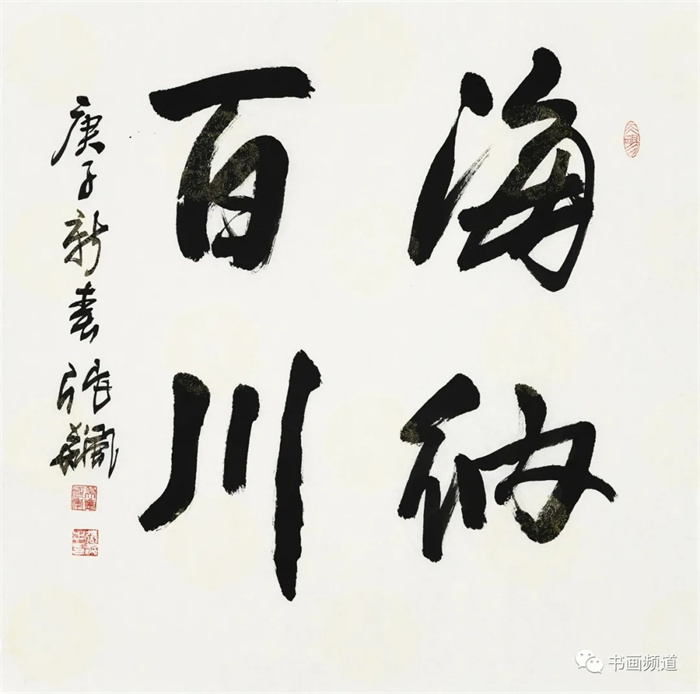 海纳
百川
庚子新春 张飙
书画频道